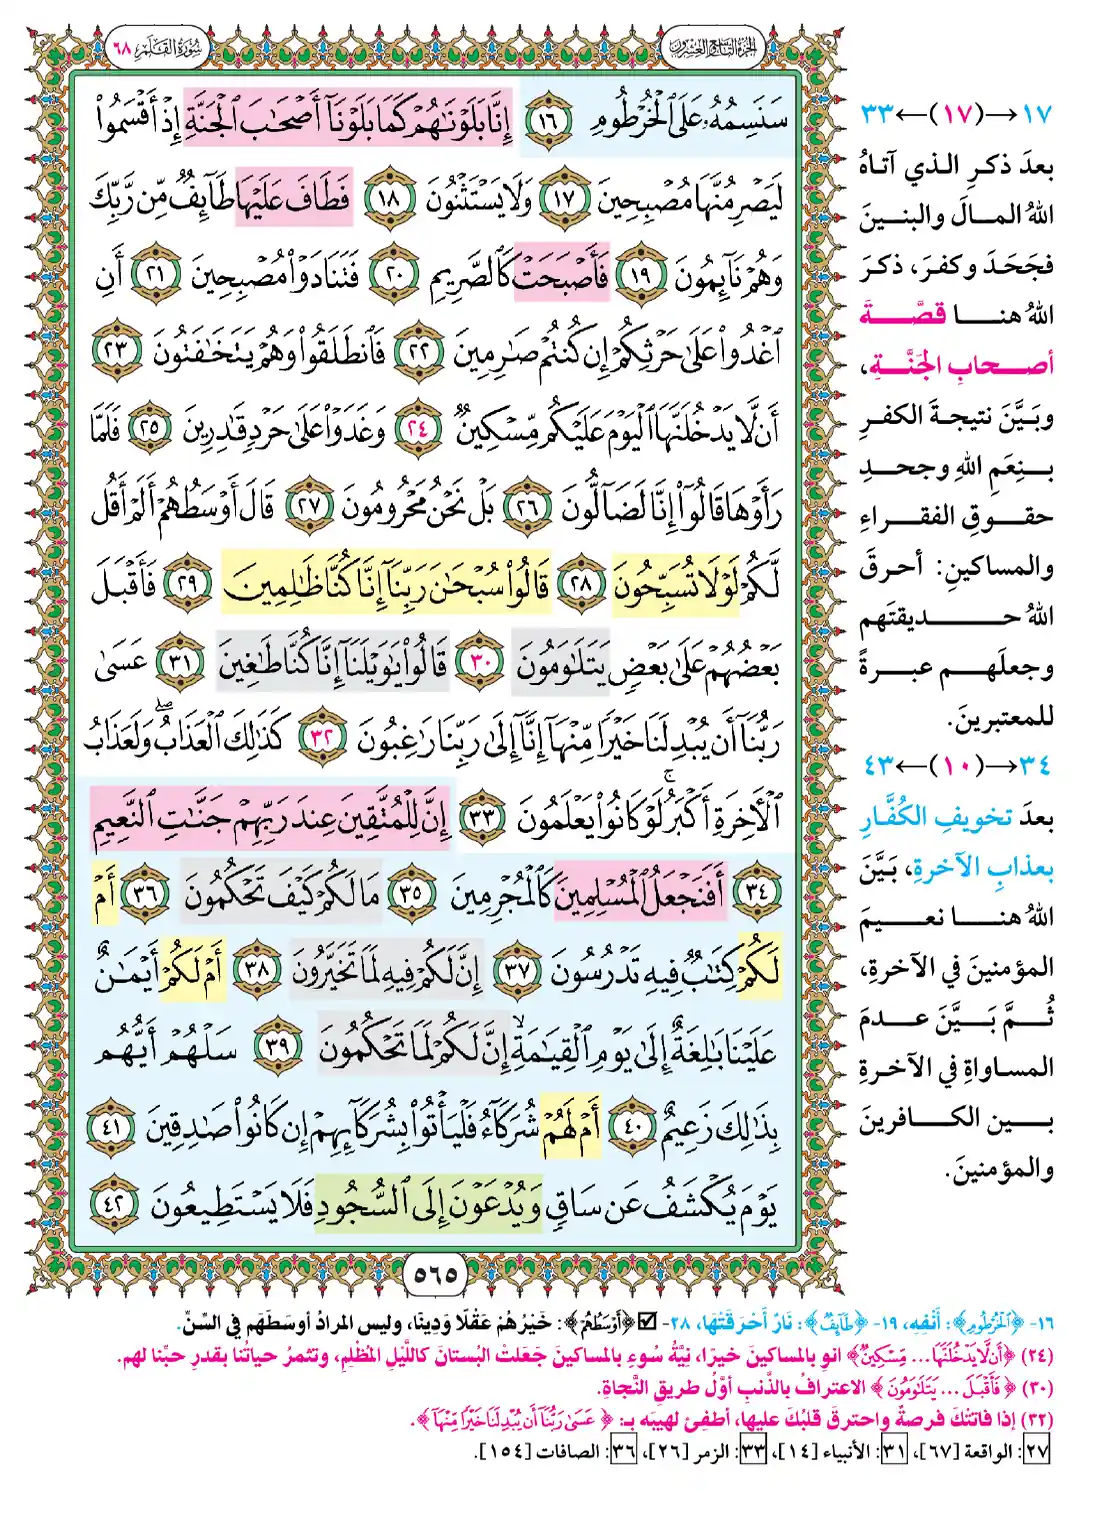 سُورَةُ القَلَمِ ٦٨
الجزء التاسع والعشرون
سَنَسِمُهُۥ عَلَى ٱلۡخُرۡطُومِ ١٦ إِنَّا بَلَوۡنَٰهُمۡ كَمَا بَلَوۡنَآ أَصۡحَٰبَ ٱلۡجَنَّةِ إِذۡ أَقۡسَمُواْ
لَيَصۡرِمُنَّهَا مُصۡبِحِينَ ١٧ وَلَا يَسۡتَثۡنُونَ ١٨ فَطَافَ عَلَيۡهَا طَآئِفٞ مِّن رَّبِّكَ
وَهُمۡ نَآئِمُونَ ١٩ فَأَصۡبَحَتۡ كَٱلصَّرِيمِ ٢٠ فَتَنَادَوۡاْ مُصۡبِحِينَ ٢١ أَنِ
ٱغۡدُواْ عَلَىٰ حَرۡثِكُمۡ إِن كُنتُمۡ صَٰرِمِينَ ٢٢ فَٱنطَلَقُواْ وَهُمۡ يَتَخَٰفَتُونَ ٢٣
أَن لَّا يَدۡخُلَنَّهَا ٱلۡيَوۡمَ عَلَيۡكُم مِّسۡكِينٞ ٢٤ وَغَدَوۡاْ عَلَىٰ حَرۡدٖ قَٰدِرِينَ ٢٥ فَلَمَّا
رَأَوۡهَا قَالُوٓاْ إِنَّا لَضَآلُّونَ ٢٦ بَلۡ نَحۡنُ مَحۡرُومُونَ ٢٧ قَالَ أَوۡسَطُهُمۡ أَلَمۡ أَقُل
لَّكُمۡ لَوۡلَا تُسَبِّحُونَ ٢٨ قَالُواْ سُبۡحَٰنَ رَبِّنَآ إِنَّا كُنَّا ظَٰلِمِينَ ٢٩ فَأَقۡبَلَ
بَعۡضُهُمۡ عَلَىٰ بَعۡضٖ يَتَلَٰوَمُونَ ٣٠ قَالُواْ يَٰوَيۡلَنَآ إِنَّا كُنَّا طَٰغِينَ ٣١ عَسَىٰ
رَبُّنَآ أَن يُبۡدِلَنَا خَيۡرٗا مِّنۡهَآ إِنَّآ إِلَىٰ رَبِّنَا رَٰغِبُونَ ٣٢ كَذَٰلِكَ ٱلۡعَذَابُۖ وَلَعَذَابُ
ٱلۡأٓخِرَةِ أَكۡبَرُۚ لَوۡ كَانُواْ يَعۡلَمُونَ ٣٣ إِنَّ لِلۡمُتَّقِينَ عِندَ رَبِّهِمۡ جَنَّٰتِ ٱلنَّعِيمِ
٣٤ أَفَنَجۡعَلُ ٱلۡمُسۡلِمِينَ كَٱلۡمُجۡرِمِينَ ٣٥ مَا لَكُمۡ كَيۡفَ تَحۡكُمُونَ ٣٦ أَمۡ
لَكُمۡ كِتَٰبٞ فِيهِ تَدۡرُسُونَ ٣٧ إِنَّ لَكُمۡ فِيهِ لَمَا تَخَيَّرُونَ ٣٨ أَمۡ لَكُمۡ أَيۡمَٰنٌ
عَلَيۡنَا بَٰلِغَةٌ إِلَىٰ يَوۡمِ ٱلۡقِيَٰمَةِۙ إِنَّ لَكُمۡ لَمَا تَحۡكُمُونَ ٣٩ سَلۡهُمۡ أَيُّهُم
بِذَٰلِكَ زَعِيمٌ ٤٠ أَمۡ لَهُمۡ شُرَكَآءُ فَلۡيَأۡتُواْ بِشُرَكَآئِهِمۡ إِن كَانُواْ صَٰدِقِينَ ٤١
يَوۡمَ يُكۡشَفُ عَن سَاقٖ وَيُدۡعَوۡنَ إِلَى ٱلسُّجُودِ فَلَا يَسۡتَطِيعُونَ ٤٢
٥٦٥
١٧→(١٧)←٣٣
بعدَ ذكرِ الذي آتاهُ
اللهُ المالَ والبنينَ
فجَحَدَ وكفرَ، ذكرَ
اللهُ هنا قصَّةَ
أصحابِ الجَنَّةِ،
وبَيَّنَ نتيجةَ الكفرِ
بنِعَمِ اللهِ وجحدِ
حقوقِ الفقراءِ
والمساكينِ: أحرقَ
اللهُ حديقتَهم
وجعلَهم عبرةً
للمعتبرينَ.
٣٤→(١٠)←٤٣
بعدَ تخويفِ الكُفَّارِ
بعذابِ الآخرةِ، بَيَّنَ
اللهُ هنا نعيمَ
المؤمنينَ في الآخرةِ،
ثُمَّ بَيَّنَ عدمَ
المساواةِ في الآخرةِ
بين الكافرينَ
والمؤمنينَ.
١٦- ﴿ٱلۡخُرۡطُومِ﴾: أَنْفِهِ، ١٩- ﴿طَآئِفٞ﴾: نَارٌ أَحْرَقَتْهَا، ٢٨- ☑ ﴿أَوۡسَطُهُمۡ﴾: خَيْرُهُمْ عَقْلًا وَدِينًا، وليس المرادُ أوسَطَهُم في السِّنِّ.
(٢٤) ﴿أَن لَّا يَدۡخُلَنَّهَا ... مِّسۡكِينٞ﴾ انو بالمساكينَ خيرًا، نِيَّةُ سُوءٍ بالمساكينَ جَعَلَتْ البُستانَ كاللَّيْلِ المُظْلِمِ، وتثمرُ حياتُنا بقدرِ حبِّنا لهم.
(٣٠) ﴿فَأَقۡبَلَ ... يَتَلَٰوَمُونَ﴾ الاعترافُ بالذَّنبِ أوَّلُ طريقِ النَّجاةِ.
(٣٢) إذا فاتتْكَ فرصةٌ واحترقَ قلبُكَ عليها، أطفِئ لهيبَه بـ: ﴿عَسَىٰ رَبُّنَآ أَن يُبۡدِلَنَا خَيۡرٗا مِّنۡهَآ﴾.
٢٧: الواقعة [٦٧]، ٣١: الأنبياء [١٤]، ٣٣: الزمر [٢٦]، ٣٦: الصافات [١٥٤].